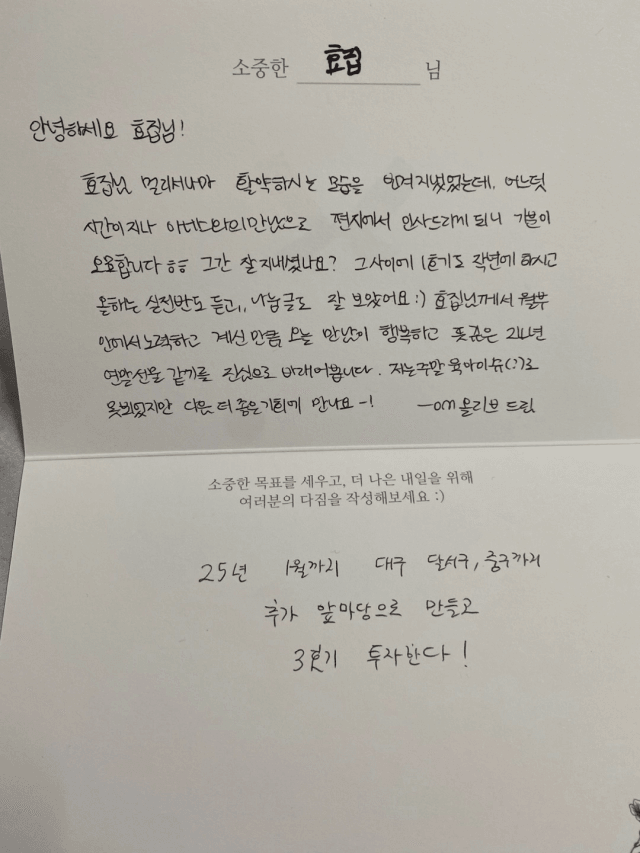 소중한 효집 님
안녕하세요 효집님!
효집님 멀리서나마 활약하시는 모습을 여겨지냈었는데, 어느덧
시간이 지나 아너스와의 만남으로 편지에서 인사드리게 되니 기분이
오묘합니다 ㅎㅎ 그간 잘 지내셨나요? 그 사이에 1호기도 작년에 하시고
올해는 실전반도 듣고,, 나눔글도 잘 보았어요 :) 효집님께서 월부
안에서 노력하고 계신 만큼 오늘 만남이 행복하고 뜻깊은 24년
연말선물 같기를 진심으로 바래어봅니다. 저는 주말 육아이슈(?)로
못뵈었지만 다음 더 좋은 기회에 만나요~!    -om 올리브 드림
소중한 목표를 세우고, 더 나은 내일을 위해
여러분의 다짐을 작성해보세요 :)
25년 1월까지 대구 달서구, 중구까지
추가 앞마당으로 만들고
3호기 투자한다!